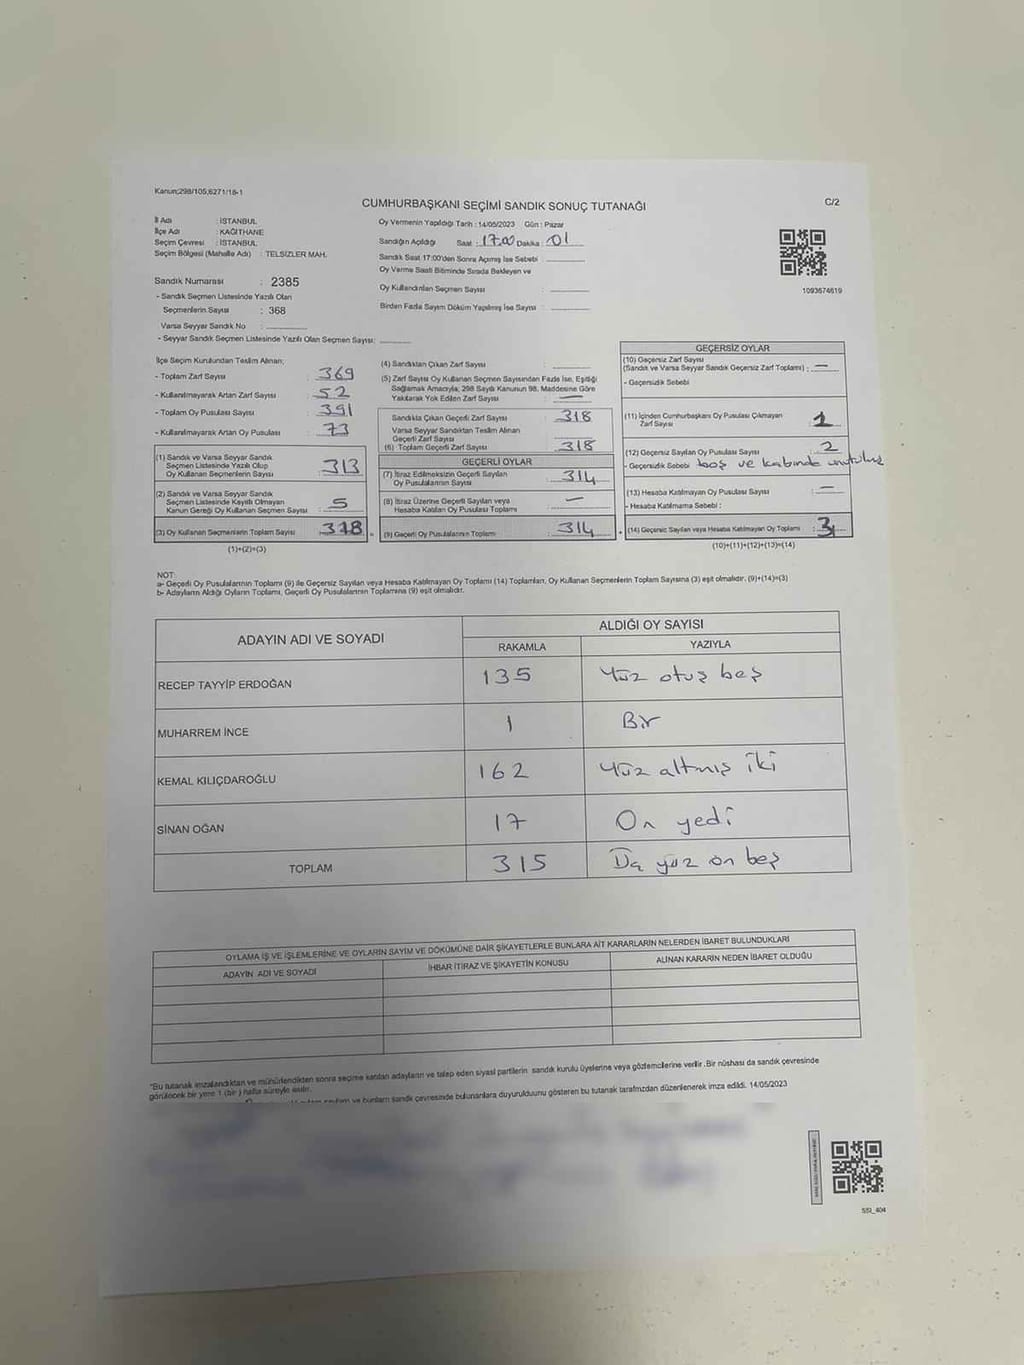 Kanun;298/105;6271/18-1
CUMHURBAŞKANI SEÇİMİ SANDIK SONUÇ TUTANAĞI
C/2
İl Adı : İSTANBUL
İlçe Adı : KAĞITHANE
Seçim Çevresi : İSTANBUL
Seçim Bölgesi (Mahalle Adı) : TELSİZLER MAH.
Sandık Numarası : 2385
- Sandık Seçmen Listesinde Yazılı Olan
Seçmenlerin Sayısı : 368
Varsa Seyyar Sandık No :
- Seyyar Sandık Seçmen Listesinde Yazılı Olan Seçmen Sayısı:
Oy Vermenin Yapıldığı Tarih : 14/05/2023 Gün : Pazar
Sandığın Açıldığı Saat : 17.00 Dakika : 01
Sandık Saat 17:00'den Sonra Açımış İse Sebebi
Oy Verme Saati Bitiminde Sırada Bekleyen ve
Oy Kullandırılan Seçmen Sayısı :
Birden Fazla Sayım Döküm Yapılmış İse Sayısı :
1093674619
İlçe Seçim Kurulundan Teslim Alınan;
- Toplam Zarf Sayısı : 369
- Kullanılmayarak Artan Zarf Sayısı : 52
- Toplam Oy Pusulası Sayısı : 391
- Kullanılmayarak Artan Oy Pusulası : 73
(1) Sandık ve Varsa Seyyar Sandık
Seçmen Listesinde Yazılı Olup
Oy Kullanan Seçmenlerin Sayısı : 313
(2) Sandık ve Varsa Seyyar Sandık
Seçmen Listesinde Kayıtlı Olmayan
Kanun Gereği Oy Kullanan Seçmen Sayısı : 5
(3) Oy Kullanan Seçmenlerin Toplam Sayısı : 318
(1)+(2)=(3)
(4) Sandıktan Çıkan Zarf Sayısı :
(5) Zarf Sayısı Oy Kullanan Seçmen Sayısından Fazla İse, Eşitliği
Sağlamak Amacıyla; 298 Sayılı Kanunun 98. Maddesine Göre
Yakılarak Yok Edilen Zarf Sayısı : —
Sandıkta Çıkan Geçerli Zarf Sayısı : 318
Varsa Seyyar Sandıktan Teslim Alınan
Geçerli Zarf Sayısı
(6) Toplam Geçerli Zarf Sayısı : 318
GEÇERLİ OYLAR
(7) İtiraz Edilmeksizin Geçerli Sayılan
Oy Pusulalarının Sayısı : 314
(8) İtiraz Üzerine Geçerli Sayılan veya
Hesaba Katılan Oy Pusulaları Toplamı : —
(9) Geçerli Oy Pusulalarının Toplamı : 314
GEÇERSİZ OYLAR
(10) Geçersiz Zarf Sayısı
(Sandık ve Varsa Seyyar Sandık Geçersiz Zarf Toplamı) : —
- Geçersizlik Sebebi
(11) İçinden Cumhurbaşkanı Oy Pusulası Çıkmayan
Zarf Sayısı :
(12) Geçersiz Sayılan Oy Pusulası Sayısı : 2
- Geçersizlik Sebebi boş ve kabinde unutulmuş
(13) Hesaba Katılmayan Oy Pusulası Sayısı : —
- Hesaba Katılmama Sebebi :
(14) Geçersiz Sayılan veya Hesaba Katılmayan Oy Toplamı :
(10)+(11)+(12)+(13)=(14)
NOT:
a- Geçerli Oy Pusulalarının Toplamı (9) ile Geçersiz Sayılan veya Hesaba Katılmayan Oy Toplamı (14) Toplamları, Oy Kullanan Seçmenlerin Toplam Sayısına (3) eşit olmalıdır. (9)+(14)=(3)
b- Adayların Aldığı Oyların Toplamı, Geçerli Oy Pusulalarının Toplamına (9) eşit olmalıdır.
ADAYIN ADI VE SOYADI
ALDIĞI OY SAYISI
RAKAMLA YAZIYLA
RECEP TAYYİP ERDOĞAN 135 Yüz otuz beş
MUHARREM İNCE 1 Bir
KEMAL KILIÇDAROĞLU 162 Yüz altmış iki
SİNAN OĞAN 17 On yedi
TOPLAM 315 Üç yüz on beş
OYLAMA İŞ VE İŞLEMLERİNE VE OYLARIN SAYIM VE DÖKÜMÜNE DAİR ŞİKAYETLERLE BUNLARA AİT KARARLARIN NELERDEN İBARET BULUNDUKLARI
ADAYIN ADI VE SOYADI İHBAR İTİRAZ VE ŞİKAYETİN KONUSU ALINAN KARARIN NEDEN İBARET OLDUĞU
"Bu tutanak imzalandıktan ve mühürlendikten sonra seçime katılan adayların ve talep eden siyasi partilerin sandık kurulu üyelerine veya gözlemcilerine verilir .Bir nüshası da sandık çevresinde
görülecek bir yere 1 (bir ) hafta süreyle asılır.
ve bunların sandık çevresinde bulunanlara duyurulduunu gösteren bu tutanak tarafımızdan düzenlenerek imza edildi. 14/05/2023
SSI_404